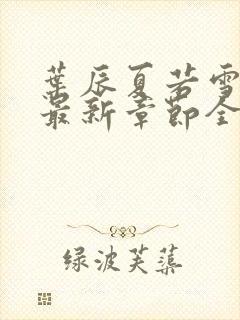 葉辰夏若雪
最新章節全
绿波芙蕖